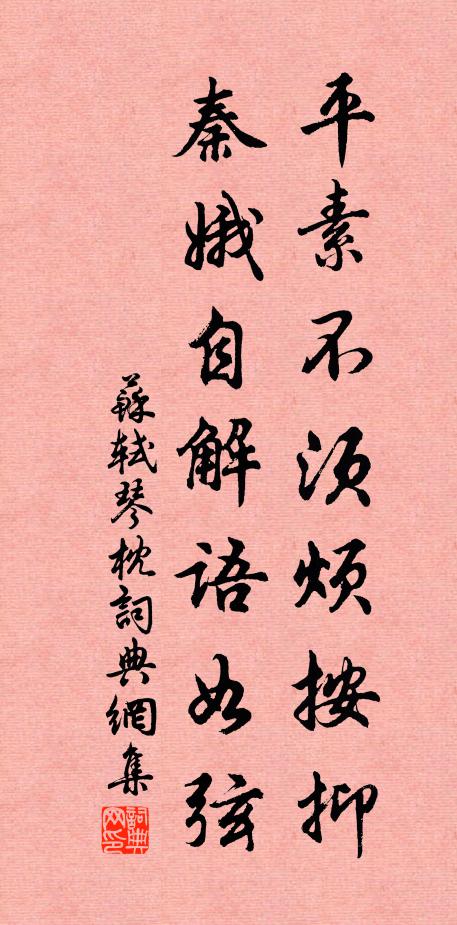 平素不須煩按抑
秦娥自解語如弦
蘇軾琴枕詞典網集
詞典網印